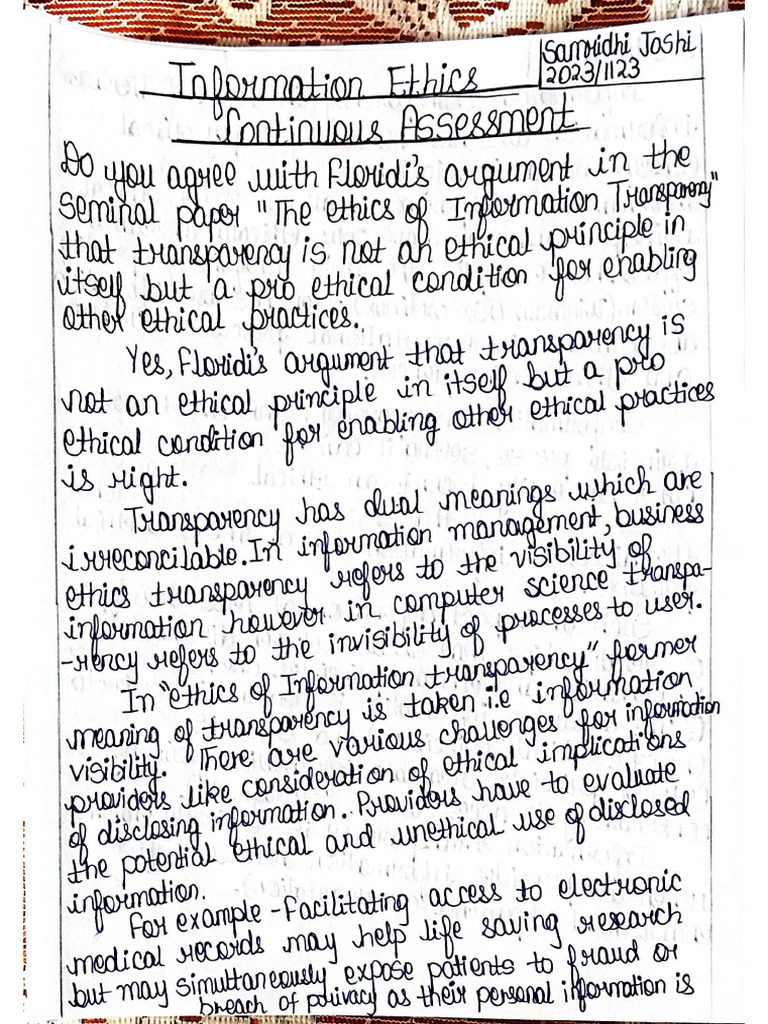 Samridhi Joshi
2023/1123
Information Ethics
Continuous Assessment
Do you agree with Floridi's argument in the
seminal paper "The ethics of Information Transparency"
that transparency is not an ethical principle in
itself but a pro ethical condition for enabling
other ethical practices.
Yes, Floridi's argument that transparency is
not an ethical principle in itself but a pro
ethical condition for enabling other ethical practices
is right.
Transparency has dual meanings which are
irreconcilable. In information management, business
ethics transparency refers to the visibility of
information however in computer science transpa-
-rency refers to the invisibility of processes to user.
In "ethics of Information transparency" former
meaning of transparency is taken i.e information
visibility. There are various challenges for information
providers like consideration of ethical implications
of disclosing information. Providers have to evaluate
the potential ethical and unethical use of disclosed
information.
For example - Facilitating access to electronic
medical records may help life saving research
but may simultaneously expose patients to fraud or
breach of privacy as their personal information is